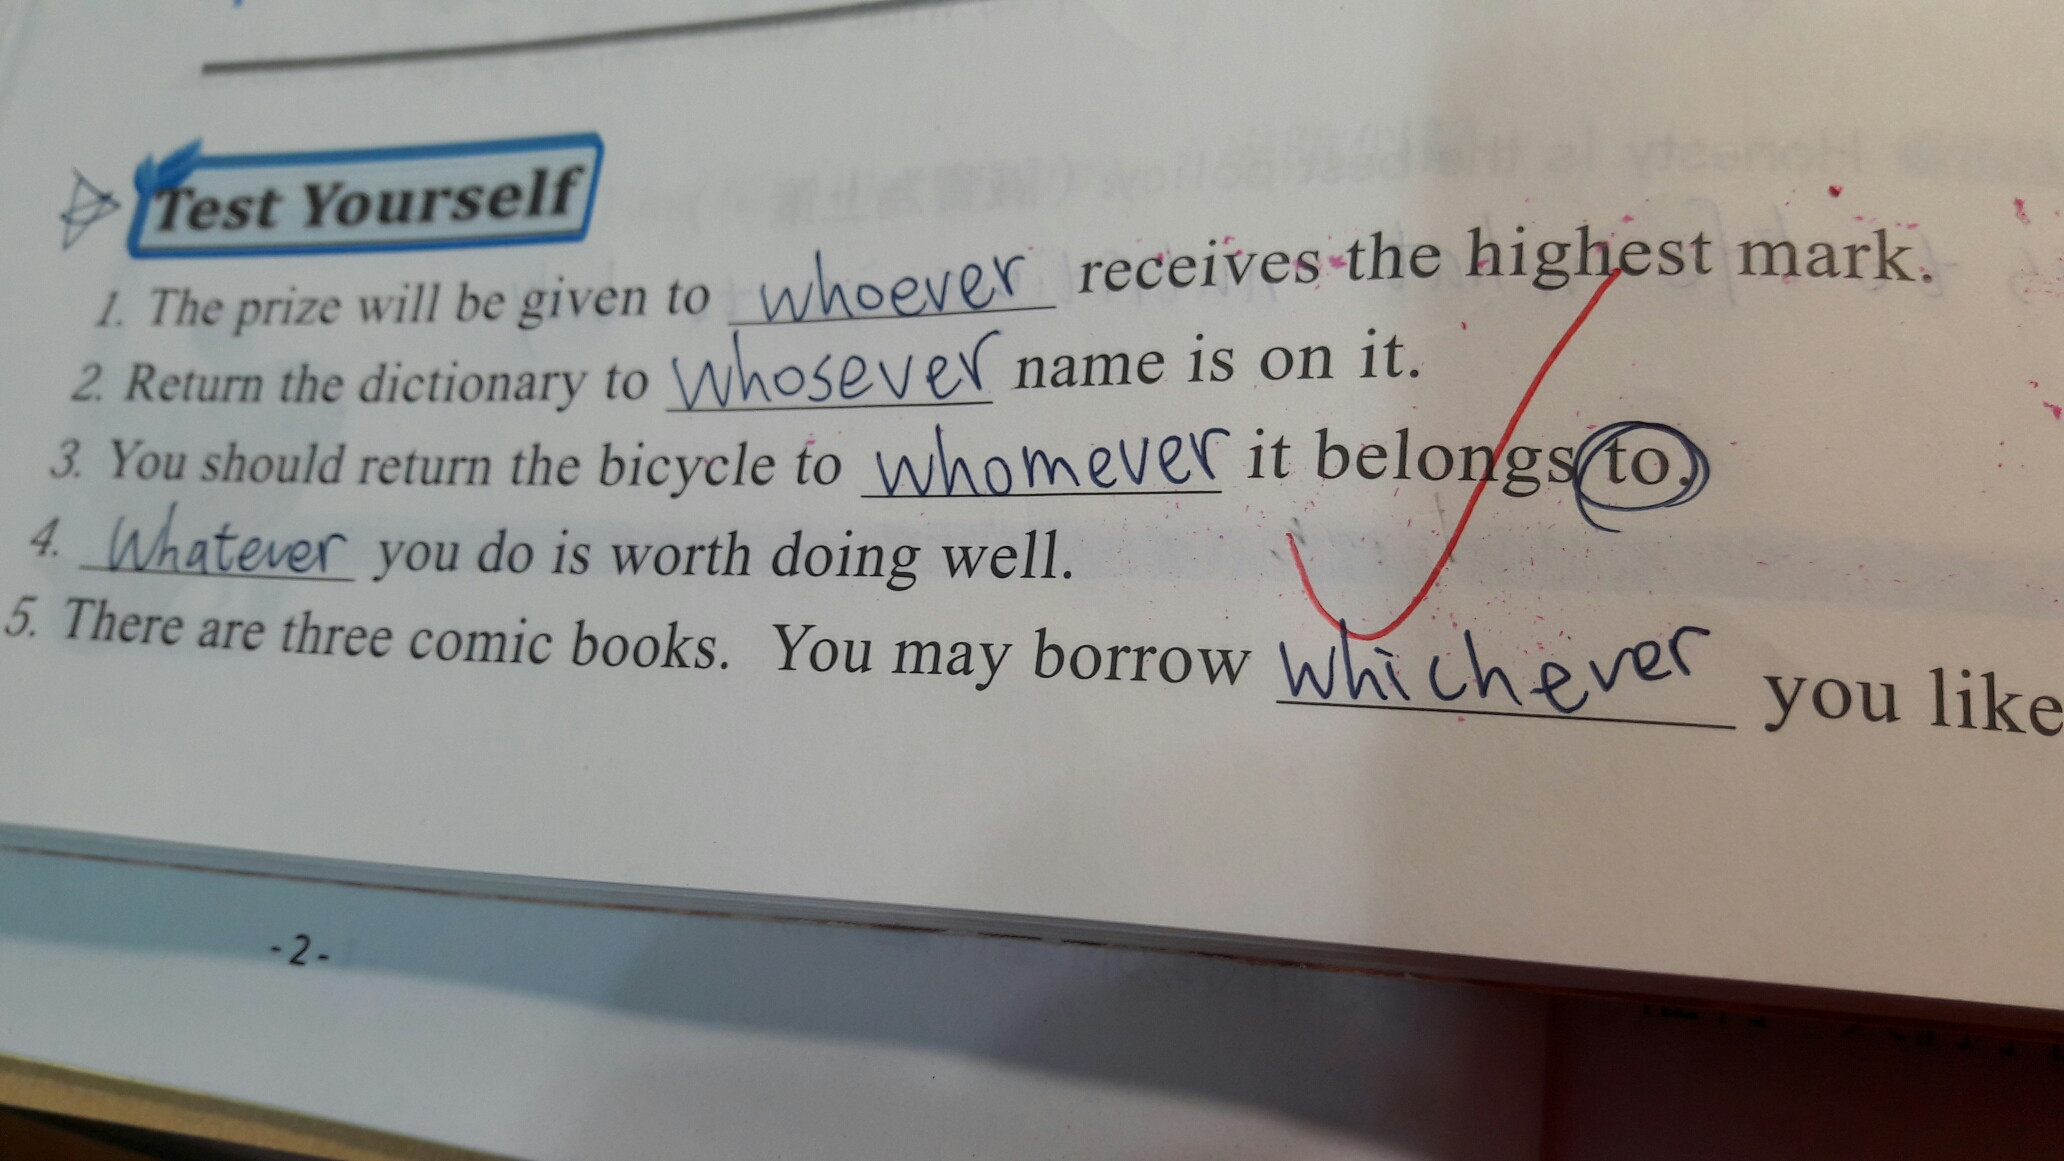 Test Yourself
1. The prize will be given to whoever receives the highest mark.
2. Return the dictionary to whosever name is on it.
3. You should return the bicycle to whomever it belongs to.
4. Whatever you do is worth doing well.
5. There are three comic books. You may borrow whichever you like
- 2 -